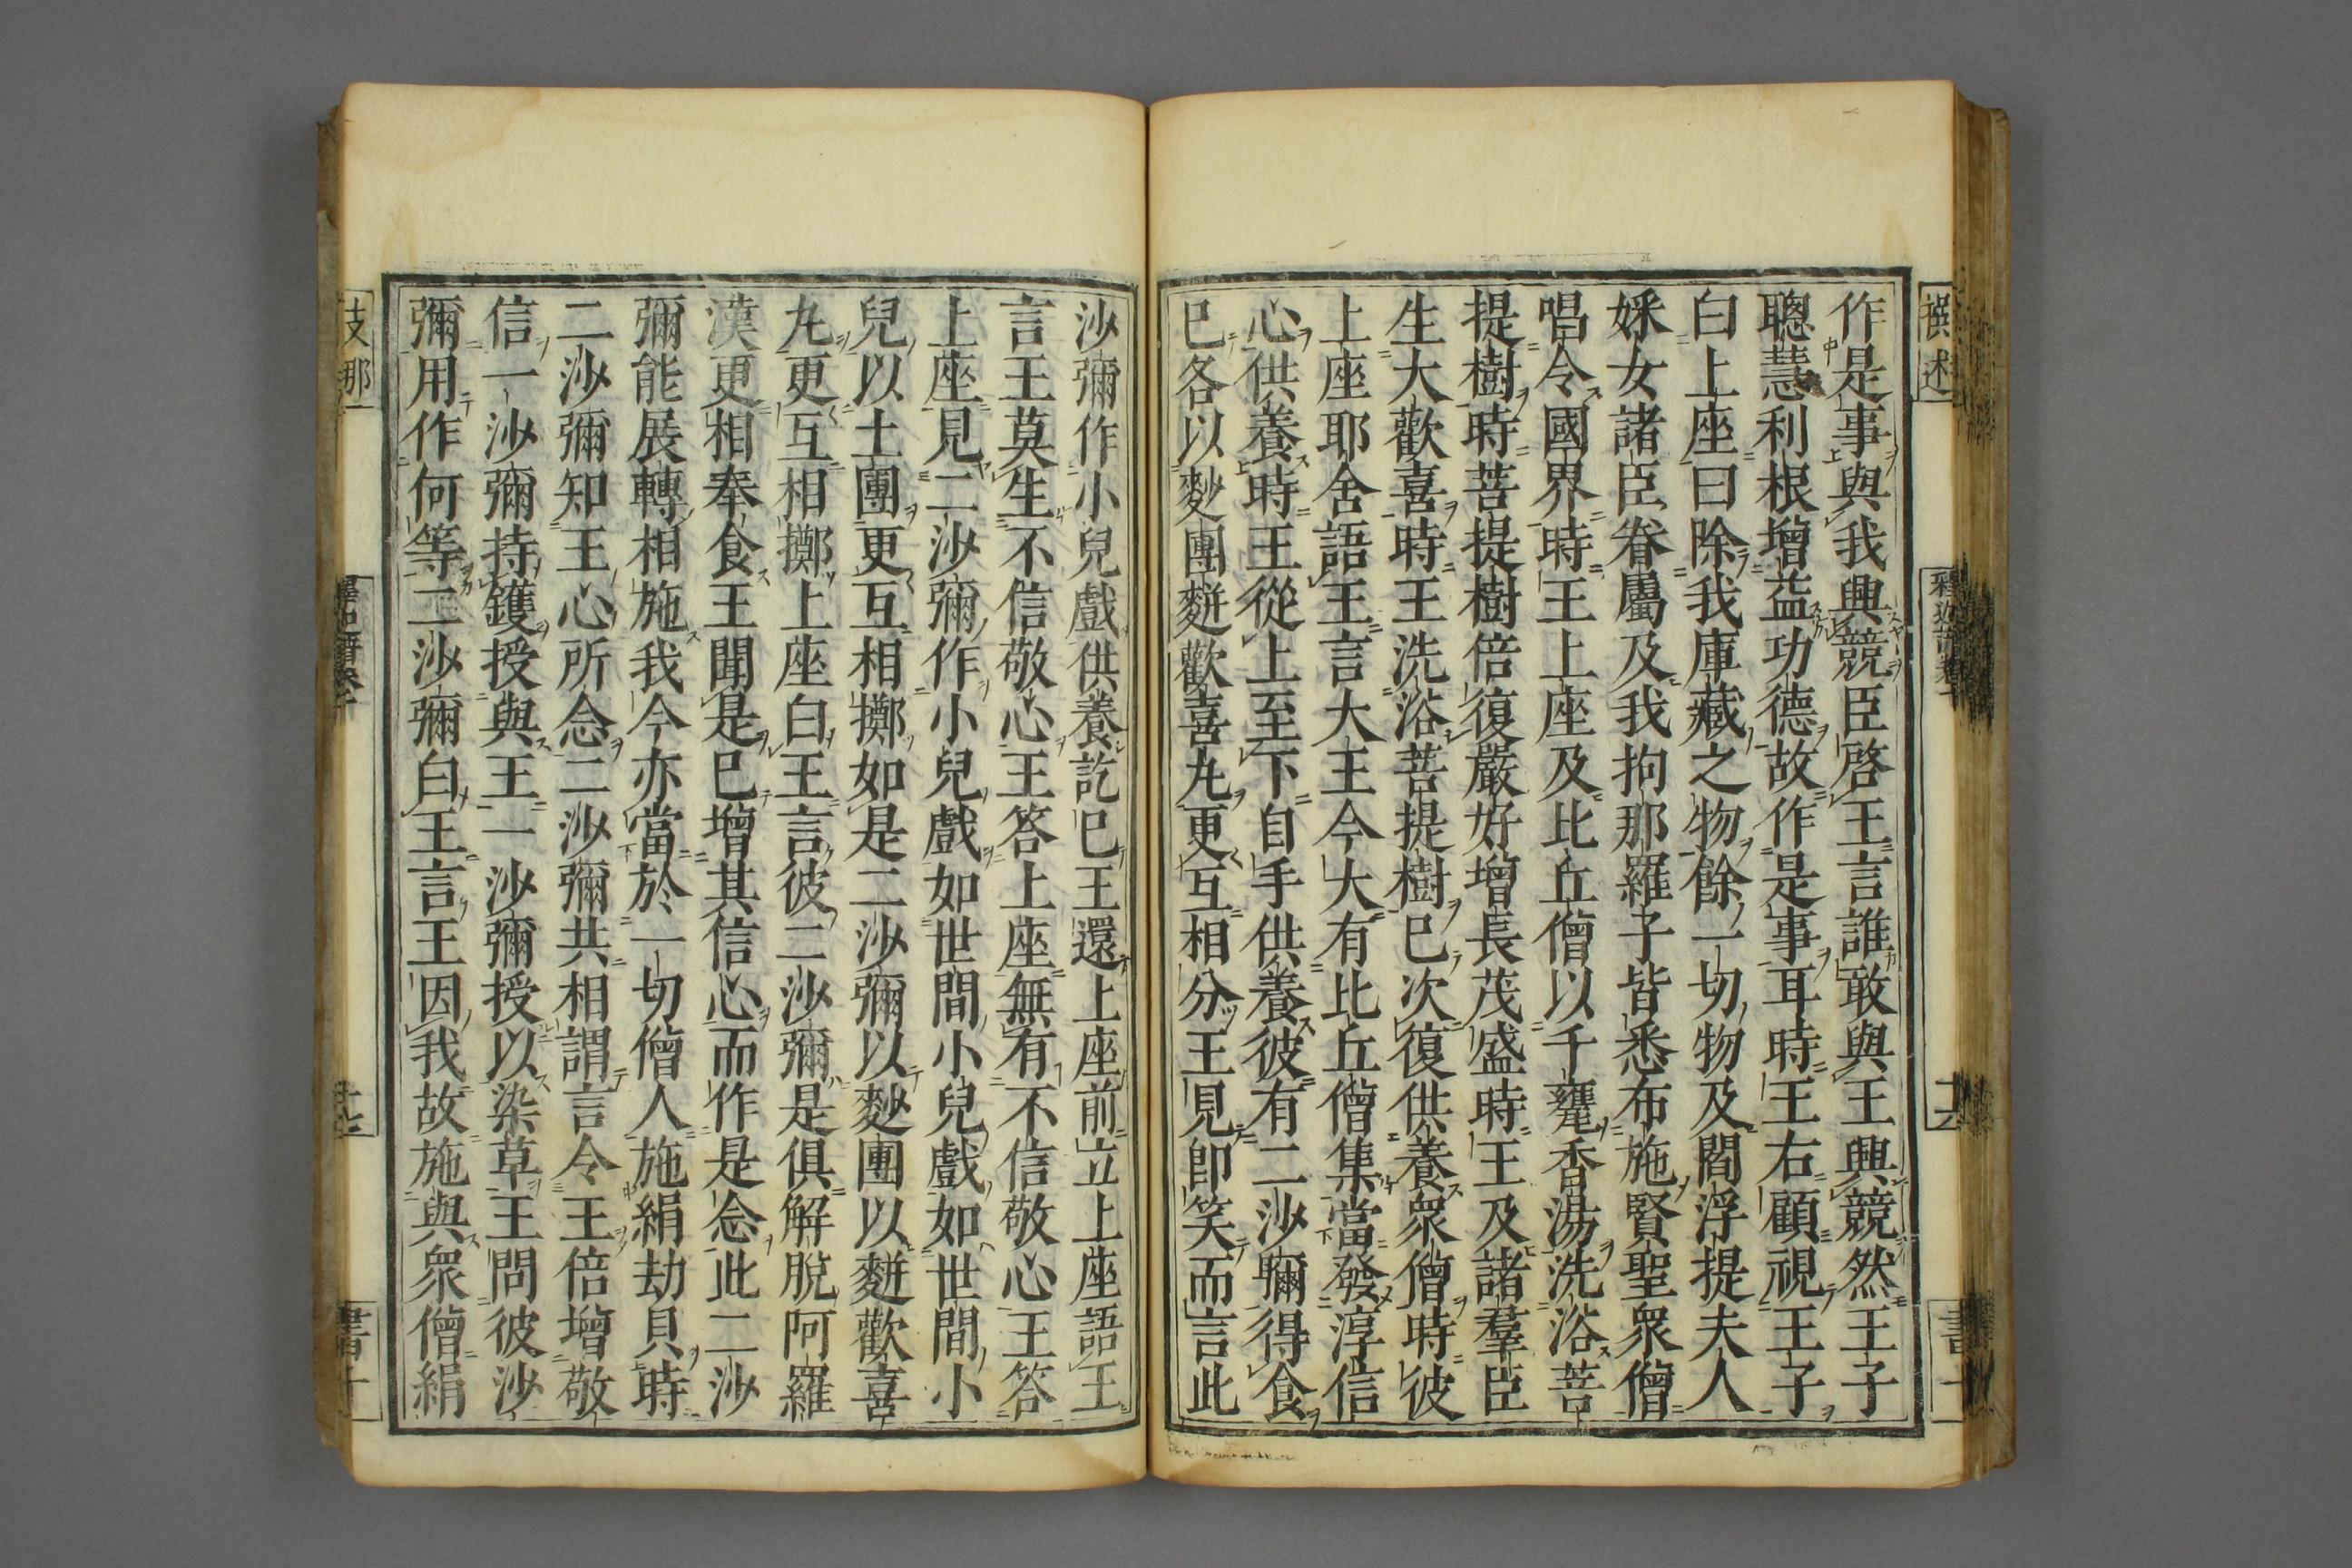 撰述
釋迦譜卷十
作是事與我興競臣啓王言誰敢與王興競然王子
聰慧利根增益功德故作是事耳時王右顧視王子
白上座曰除我庫藏之物餘一切物及閻浮提夫人
婇女諸臣眷屬及我拘那羅子皆悉布施賢聖衆僧
唱令國界時王上座及比丘僧以千甕香湯洗浴菩
提樹時菩提樹倍復嚴好增長茂盛時王及諸羣臣
生大歡喜時王洗浴菩提樹已次復供養衆僧時彼
上座耶舍語王言大王今大有比丘僧集當發淳信
心供養時王從上至下自手供養彼有二沙彌得食
已各以麨團麨歡喜丸更互相分王見卽笑而言此
沙彌作小兒戲供養訖已王還上座前立上座語王
言王莫生不信敬心王答上座無有不信敬心王答
上座見二沙彌作小兒戲如世間小兒戲如世間小
兒以土團更互相擲如是二沙彌以麨團以麨歡喜
丸更互相擲上座白王言彼二沙彌是俱解脫阿羅
漢更相奉食王聞是已增其信心而作是念此二沙
彌能展轉相施我今亦當於一切僧人施絹劫貝時
二沙彌知王心所念二沙彌共相謂言令王倍增敬
信一沙彌持鑊授與王一沙彌授以染草王問彼沙
彌用作何等二沙彌白王言王因我故施與衆僧絹
支那
書十